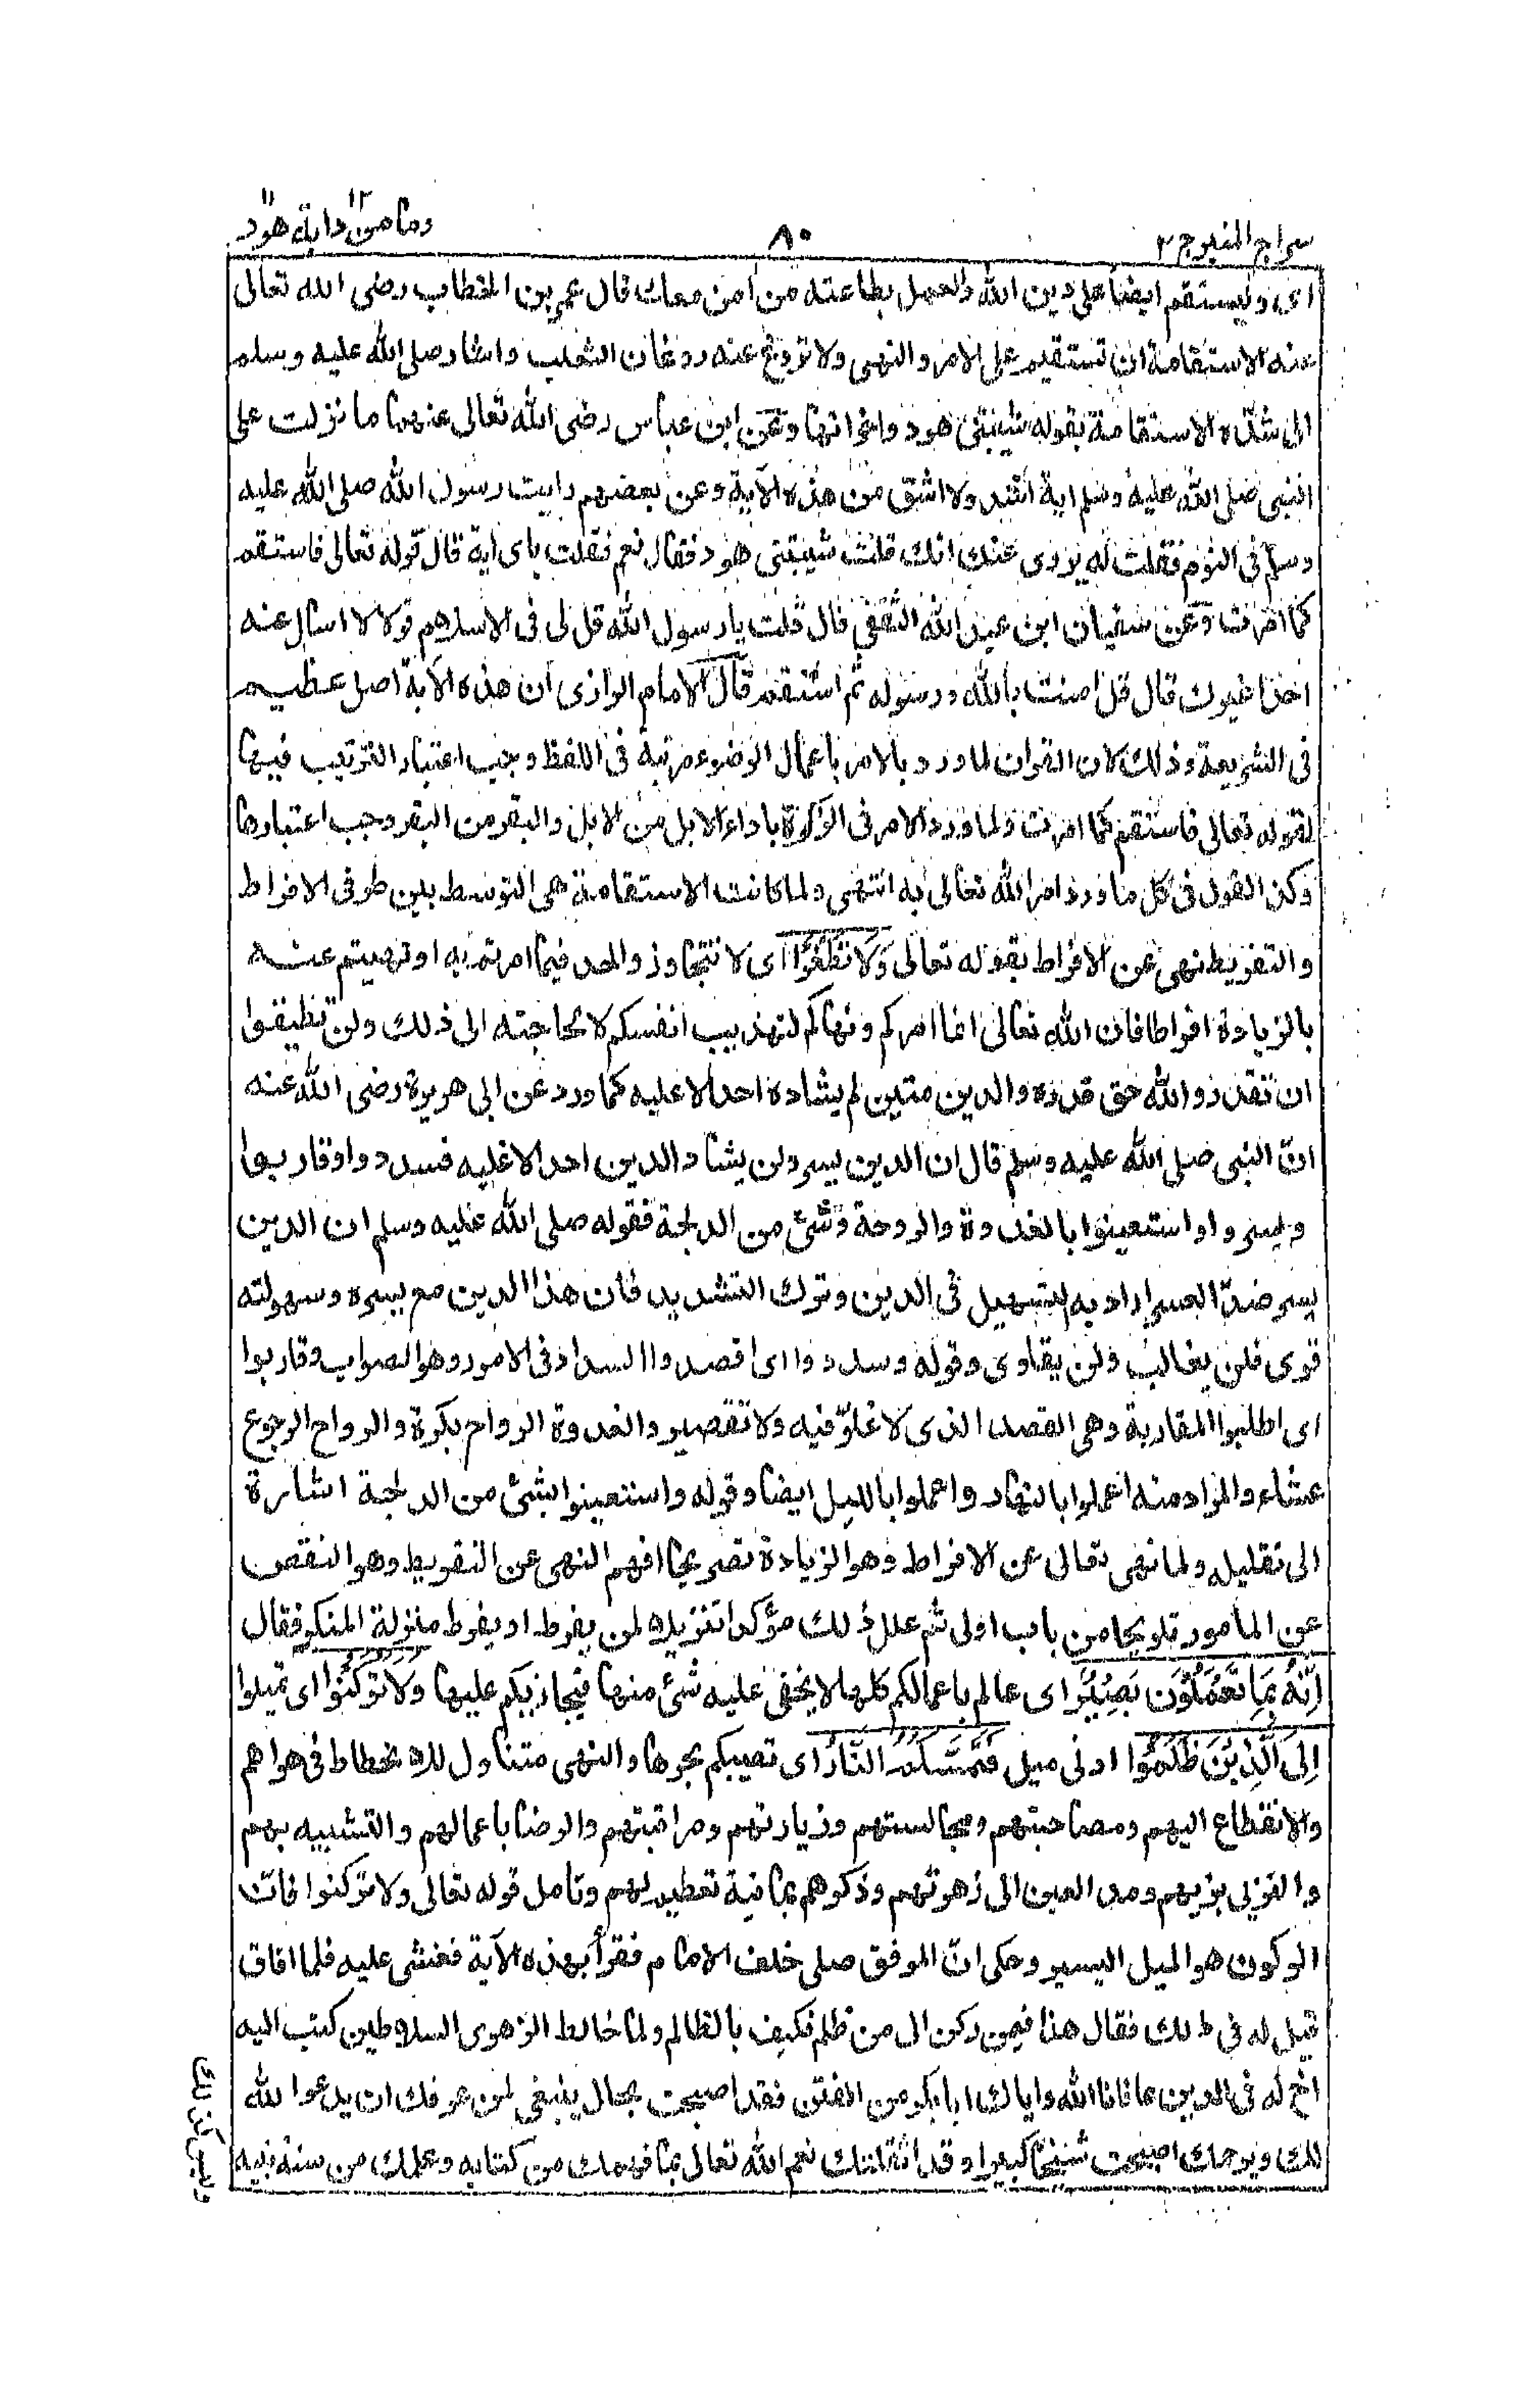 سراج المنير ج ٢
٨٠
وما من دابة ١٢ هود ١١
اى وليستقم ايضا على دين الله والعمل بطاعته من اٰمن معك قال عمر بن الخطاب رضى الله تعالى
عنه الاستقامة ان تستقيم على الامر والنهى ولا تروغ عنه روغان الثعلب واشار صلى الله عليه وسلم
الى شدة الاستقامة بقوله شيبتنى هود واخواتها وعن ابن عباس رضى الله تعالى عنهما ما نزلت على
النبى صلى الله عليه وسلم اية اشد ولا اشق من هذه الآية وعن بعضهم رايت رسول الله صلى الله عليه
وسلم فى النوم فقلت له يروى عنك انك قلت شيبتنى هود فقال نعم فقلت باى اية قال قوله تعالى فاستقم
كما امرت وعن سفيان ابن عبد الله الثقفى قال قلت يا رسول الله قل لى فى الاسلام قولا لا اسال عنه
احدا غيرك قال قل امنت بالله ورسوله ثم استقم قال الامام الرازى ان هذه الآية اصل عظيم
فى الشريعة وذلك لان القران لما ورد بالامر باعمال الوضوء مرتبة فى اللفظ وجب اعتبار الترتيب فيها
لقوله تعالى فاستقم كما امرت ولما ورد الامر فى الزكوة باداء الابل من الابل والبقر من البقر وجب اعتبارها
وكذا القول فى كل ما ورد امر الله تعالى به انتهى ولما كانت الاستقامة هى التوسط بين طرفى الافراط
والتفريط نهى عن الافراط بقوله تعالى وَلَا تَطْغَوْا اى لا تتجاوزوا الحد فيما امرتم به او نهيتم عنه
بالزيادة افراطا فان الله تعالى انما امركم ونهاكم لتهذيب انفسكم لا لحاجته الى ذلك ولن تطيقوا
ان تقدروا الله حق قدره والدين متين لم يشاده احد الا غلبه كما ورد عن ابى هريرة رضى الله عنه
انّ النبى صلى الله عليه وسلم قال ان الدين يسر ولن يشاد الدين احد الا غلبه فسددوا وقاربوا
ويسروا واستعينوا بالغدوة والروحة وشئ من الدلجة فقوله صلى الله عليه وسلم ان الدين
يسر ضدّ العسر اراد به التسهيل فى الدين وترك التشديد فان هذا الدين مع يسره وسهولته
قوى فلن يغالب ولن يقاوى وقوله وسددوا اى اقصدوا السداد فى الامور وهو الصواب وقاربوا
اى اطلبوا المقاربة وهى القصد الذى لا غلوّ فيه ولا تقصير والغدوة الرواح بكرة والرواح الرجوع
عشاء والمراد منه اعملوا بالنهار واعملوا بالليل ايضا وقوله واستعينوا بشئ من الدلجة اشارة
الى تقليله ولما نهى تعالى عن الافراط وهو الزيادة تصريحا افهم النهى عن التفريط وهو النقص
عن المأمور تلويحا من باب اولى ثم علل ذلك مؤكدا تنزيلا لمن يفرط او يفرط منزلة المنكر فقال
اِنَّهٗ بِمَا تَعْمَلُوْنَ بَصِيْرٌ اى عالم باعمالكم كلها لا يخفى عليه شئ منها فيجازيكم عليها وَلَا تَرْكَنُوْا اى تميلوا
اِلَى الَّذِيْنَ ظَلَمُوْا ادنى ميل فَتَمَسَّكُمُ النَّارُ اى تصيبكم بحرها والنهى متناول للانحطاط فى هواهم
والانقطاع اليهم ومصاحبتهم ومجالستهم وزيارتهم ومراقبتهم والرضا باعمالهم والتشبيه بهم
والتزيى بزيهم ومد العين الى زهرتهم وذكرهم بما فيه تعظيم لهم وتامل قوله تعالى ولا تركنوا فان
الركون هو الميل اليسير وحكى انّ الموفق صلى خلف الامام فقرأ بهذه الآية فغشى عليه فلما افاق
قيل له فى ذلك فقال هذا فيمن ركن الى من ظلم فكيف بالظالم ولما خالط الزهرى السلاطين كتب اليه
اخ له فى الدين عافانا الله واياك ابا بكر من الفتن فقد اصبحت بحال ينبغى لمن عرفك ان يدعو الله
لك ويرحمك اصبحت شيخا كبيرا وقد اثقلتك نعم الله تعالى بما فهمك من كتابه وعلمك من سنة نبيه
وليس كذلك